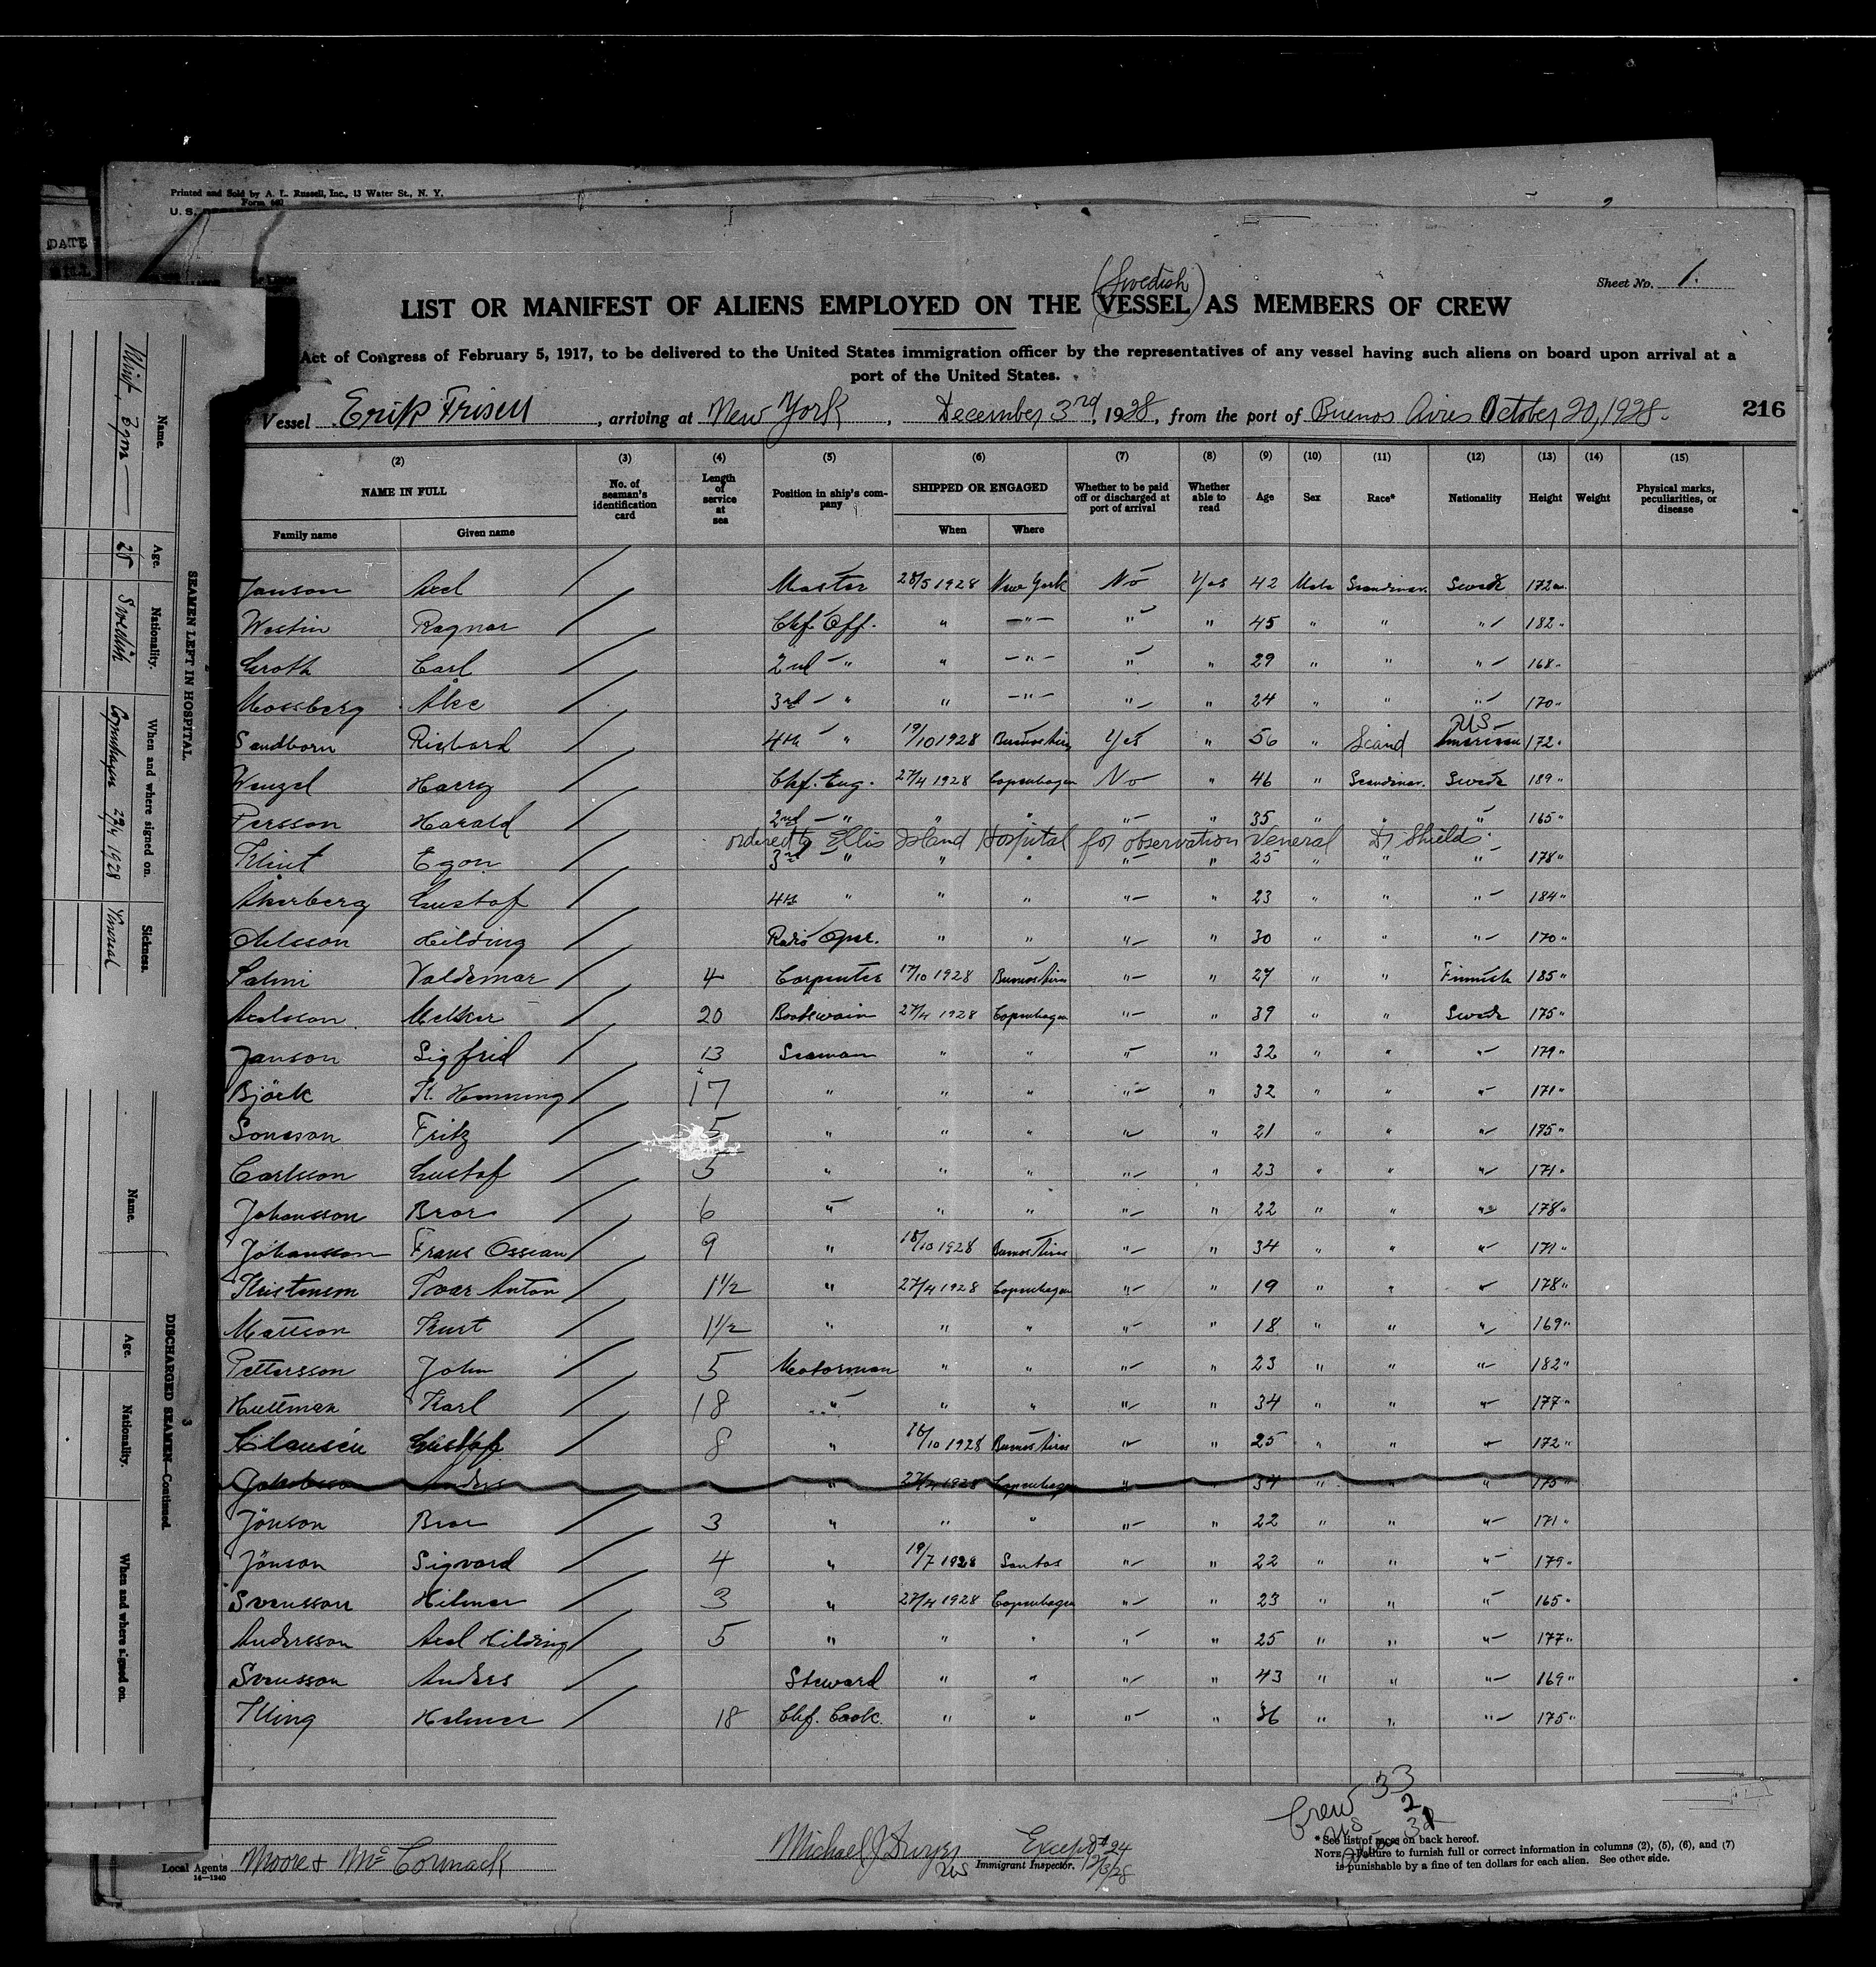 Printed and Sold by A. L. Russell, Inc., 13 Water St., N. Y.
Form 680
U. S.
DATE
Sheet No. 1.
(Swedish)
LIST OR MANIFEST OF ALIENS EMPLOYED ON THE VESSEL AS MEMBERS OF CREW
Act of Congress of February 5, 1917, to be delivered to the United States immigration officer by the representatives of any vessel having such aliens on board upon arrival at a
port of the United States.
Vessel Erik Frisell, arriving at New York, December 3rd, 1928, from the port of Buenos Aires October 20, 1928. 216
(2) (3) (4) (5) (6) (7) (8) (9) (10) (11) (12) (13) (14) (15)
NAME IN FULL No. of seaman's identification card Length of service at sea Position in ship's company SHIPPED OR ENGAGED Whether to be paid off or discharged at port of arrival Whether able to read Age Sex Race* Nationality Height Weight Physical marks, peculiarities, or disease
Family name Given name When Where
Janson Axel Master 28/5 1928 New York No Yes 42 Male Scandinav. Swede 172 cm.
Westin Ragnar Chf. Off. " —"— " " 45 " " " 182 "
Groth Carl 2nd — " " —"— " " 29 " " " 168 "
Mossberg Åke 3rd — " " —"— " " 24 " " " 170 "
US
Sandborn Richard 4th — " 19/10 1928 Buenos Aires Yes " 56 " Scand American 172 "
Wenzel Harry Chf. Eng. 27/4 1928 Copenhagen No " 46 " Scandinav. Swede 189 "
Persson Harald 2nd — " " " " " 35 " " " 165 "
ordered to Ellis Island Hospital for observation Veneral Dr Shields
Klint Egon 3rd — " " " " " 25 " " " 178 "
Åkerberg Gustaf 4th " " " " " 23 " " " 184 "
Nelsson Hilding Radio Oper. " " " " 30 " " " 170 "
Salmi Valdemar 4 Carpenter 17/10 1928 Buenos Aires " " 27 " " Finnish 185 "
Axelsson Melker 20 Boatswain 27/4 1928 Copenhagen " " 39 " " Swede 175 "
Janson Sigfrid 13 Seaman " " " " 32 " " " 179 "
Björk K. Henning 17 " " " " " 32 " " " 171 "
Sonesson Fritz 5 " " " " " 21 " " " 175 "
Carlsson Gustaf 5 " " " " " 23 " " " 171 "
Johansson Bror 6 " " " " " 22 " " " 178 "
Johansson Frans Ossian 9 " 18/10 1928 Buenos Aires " " 34 " " " 171 "
Kristenson Ivar Anton 1½ " 27/4 1928 Copenhagen " " 19 " " " 178 "
Mattson Knut 1½ " " " " " 18 " " " 169 "
Pettersson John 5 Motorman " " " " 23 " " " 182 "
Hultman Karl 18 " " " " " 34 " " " 177 "
Clausén Gustaf 8 " 16/10 1928 Buenos Aires " " 25 " " " 172 "
Jakobsson Anders " 27/4 1928 Copenhagen " " 34 " " " 175 "
Jönson Bror 3 " " " " " 22 " " " 171 "
Jönson Sigvard 4 " 19/7 1928 Santos " " 22 " " " 179 "
Svensson Hilmer 3 " 27/4 1928 Copenhagen " " 23 " " " 165 "
Andersson Axel Hilding 5 " " " " " 25 " " " 177 "
Svensson Anders Steward " " " " 43 " " " 169 "
Kling Helmer 18 Chf. Cook " " " " 36 " " " 175 "
Crew 33
2
US
Local Agents Moore & McCormack
14—1240
Michael J Dwyer Except #24
US Immigrant Inspector. 12/3/28
* See list of races on back hereof.
NOTE.—Failure to furnish full or correct information in columns (2), (5), (6), and (7)
is punishable by a fine of ten dollars for each alien. See other side.
SEAMEN LEFT IN HOSPITAL.
Name. Age. Nationality. When and where signed on. Sickness.
Klint, Egon 25 Swedish Copenhagen 27/4 1928 Veneral
3
DISCHARGED SEAMEN—Continued.
Name. Age. Nationality. When and where signed on.